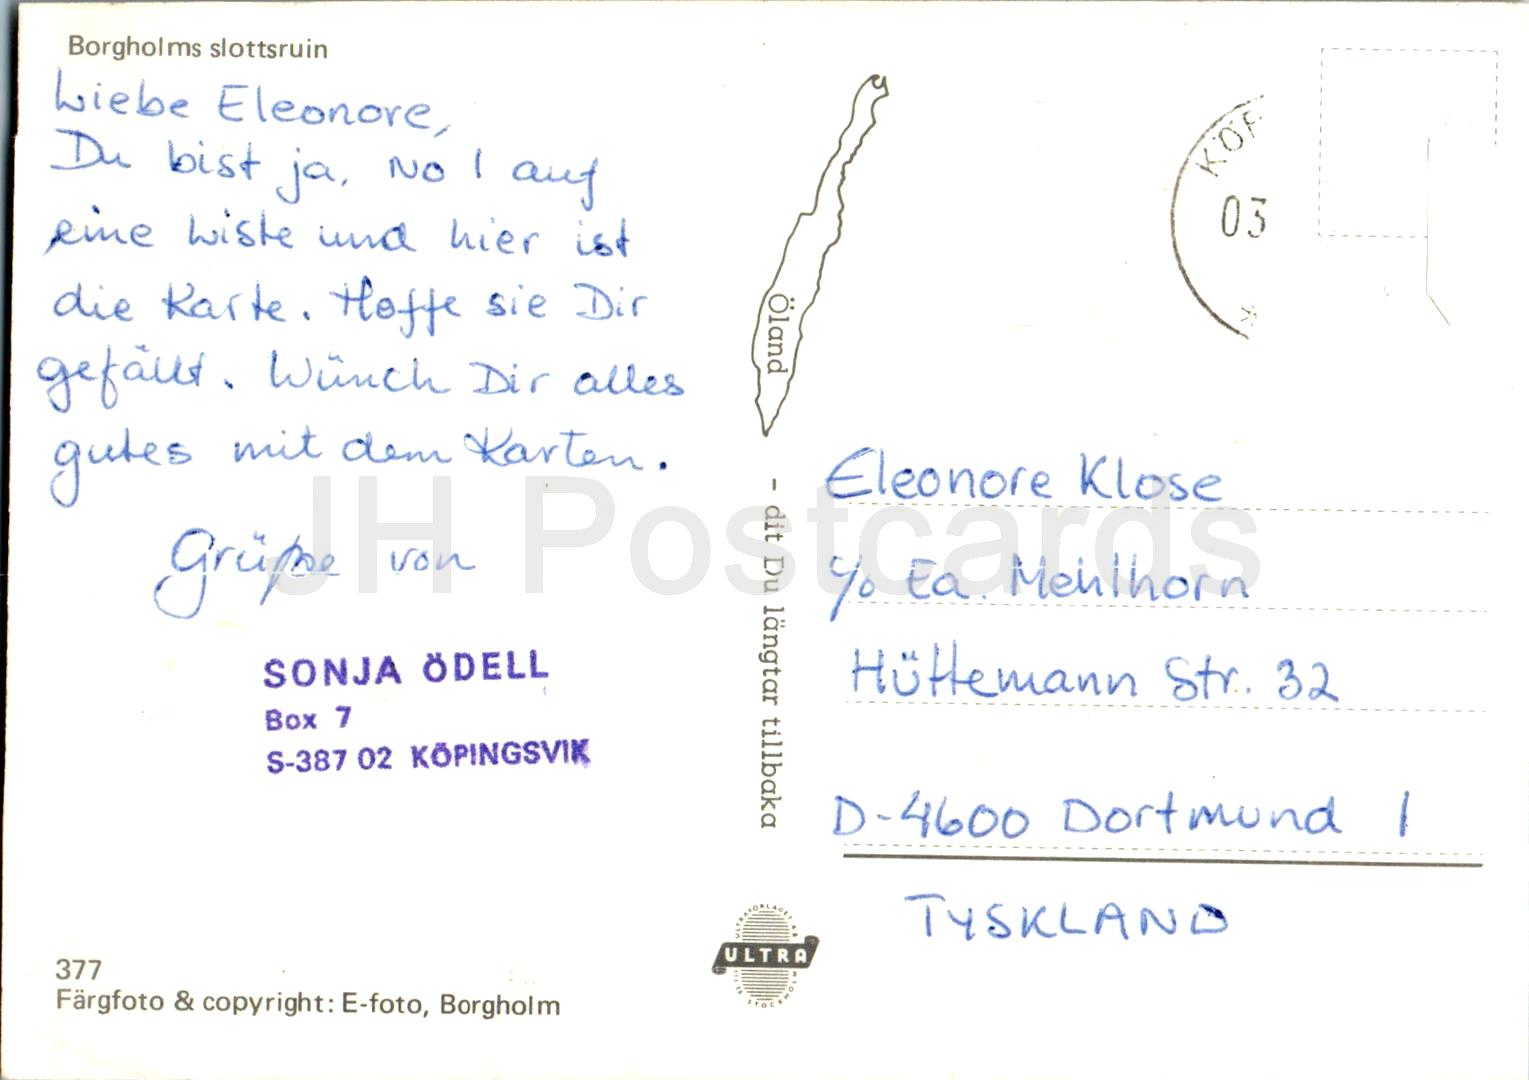 Borgholms slottsruin
Liebe Eleonore,
Du bist ja, No 1 auf
eine Liste und hier ist
die Karte. Hoffe sie Dir
gefällt. Wünch Dir alles
gutes mit dem Karten.
Grüße von
SONJA ÖDELL
Box 7
S-387 02 KÖPINGSVIK
377
Färgfoto & copyright: E-foto, Borgholm
Öland
- dit Du längtar tillbaka
ULTRAFÖRLAGET AB
ULTRA
STOCKHOLM
KÖP
03
Eleonore Klose
c/o Fa. Mehlhorn
Hüttemann Str. 32
D-4600 Dortmund 1
TYSKLAND
JH Postcards